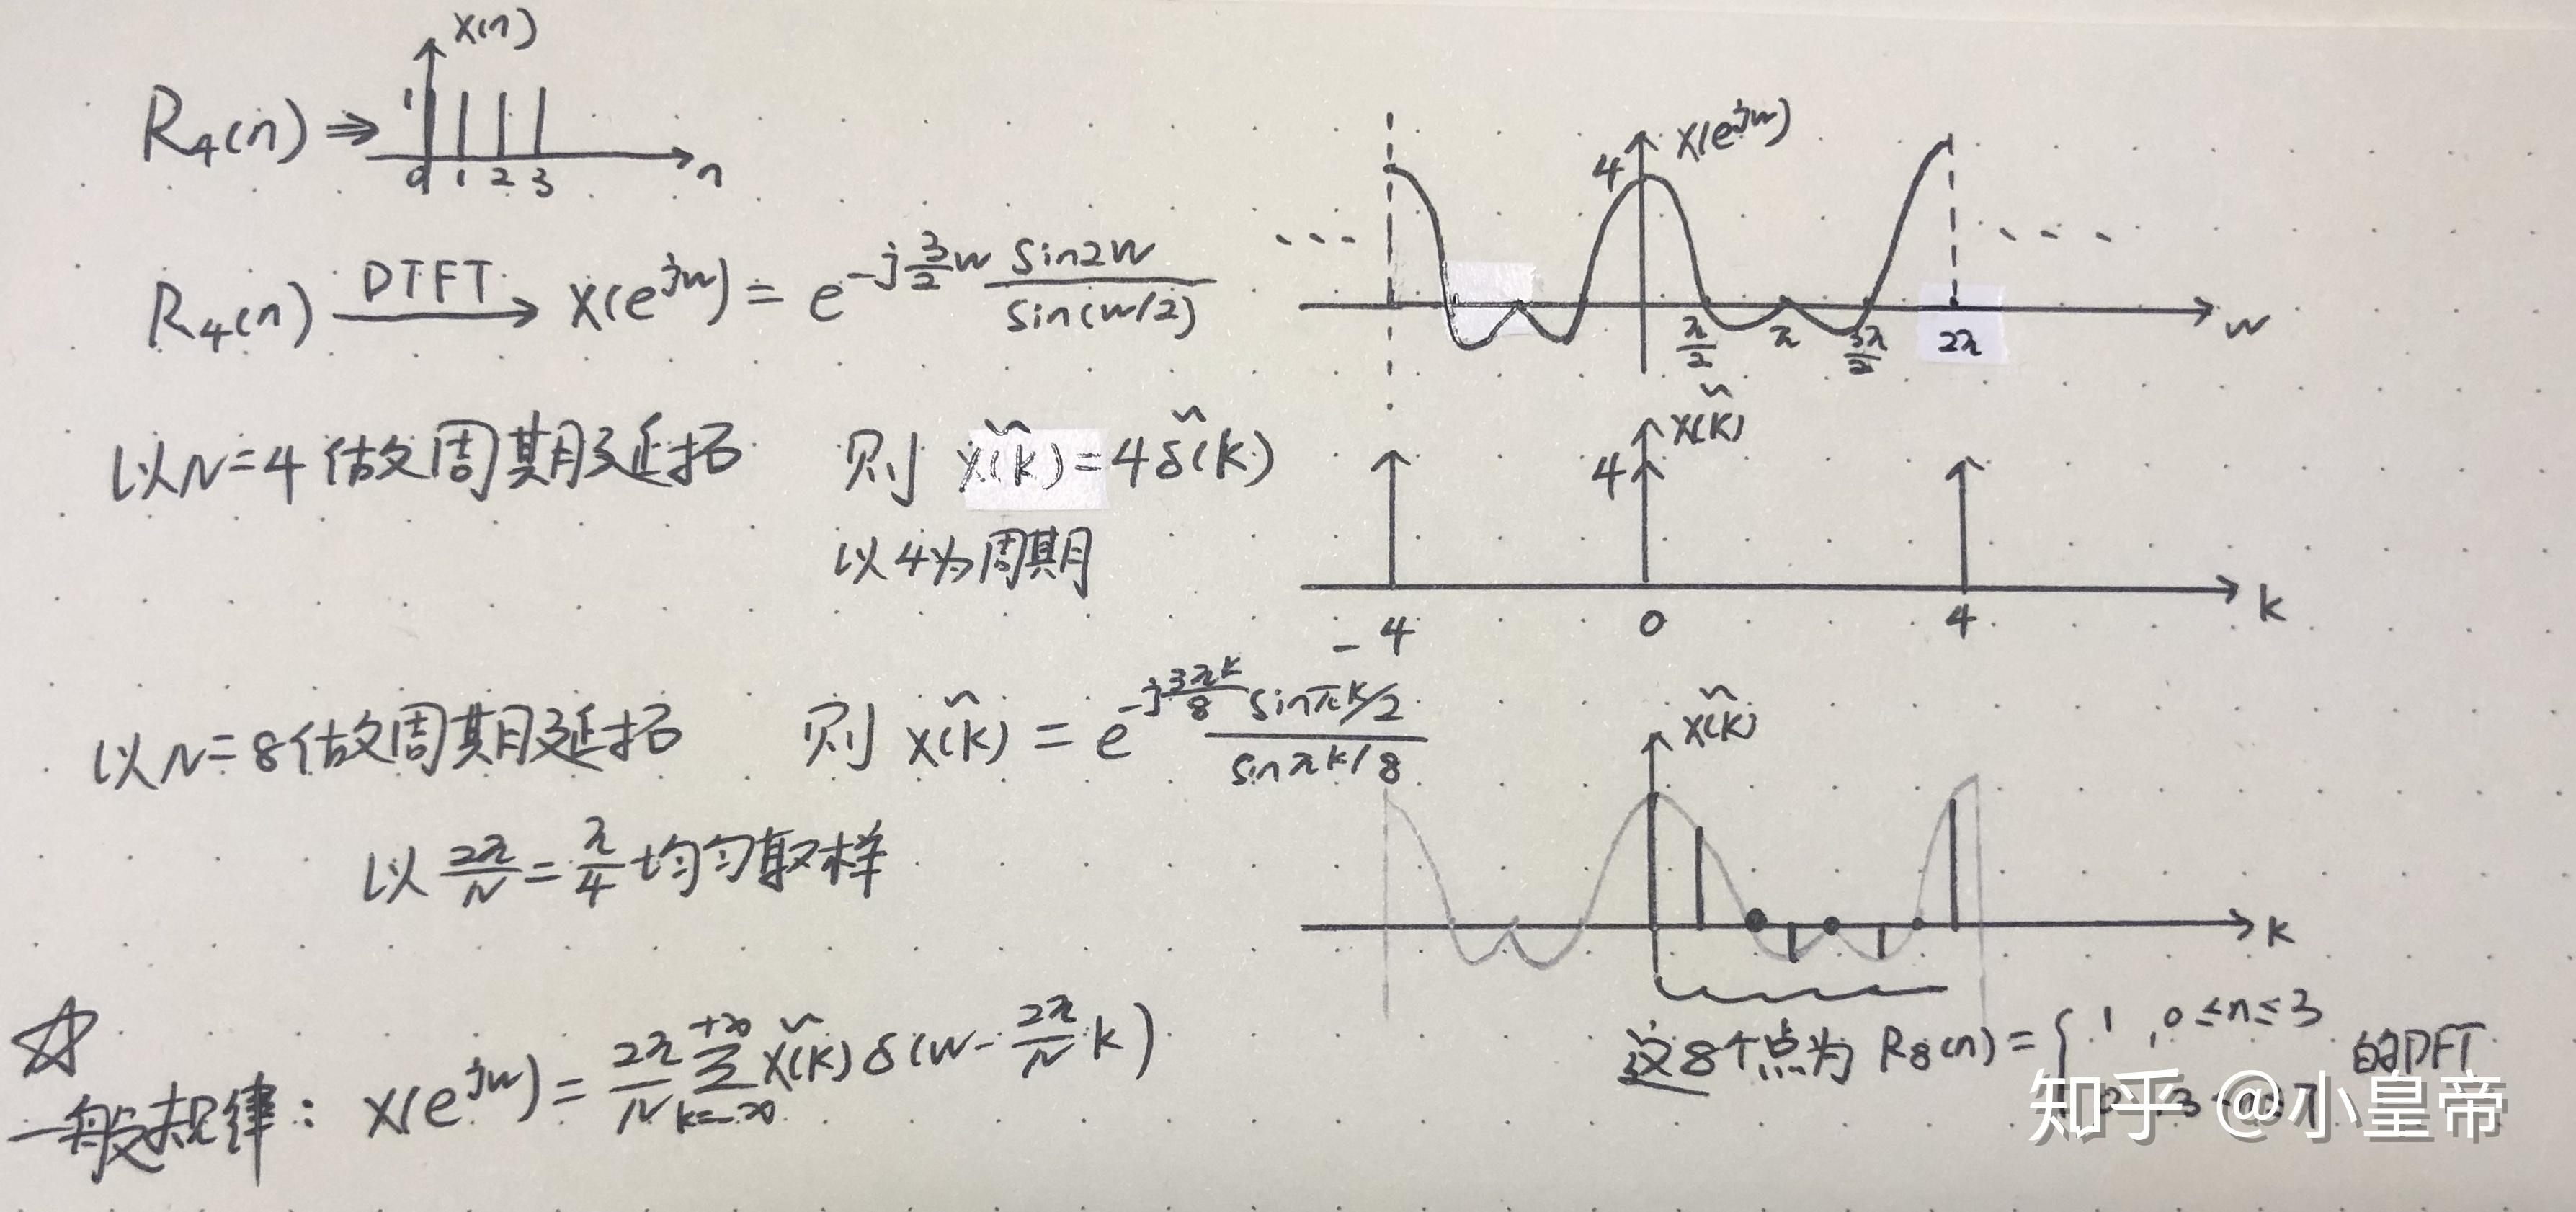 x(n)
R₄(n) ⇒
1
0 1 2 3 n
R₄(n) DTFT→ X(e^{jw}) = e^{-j\frac{3}{2}w} \frac{sin2w}{sin(w/2)}
X(e^{jw})
4
π/2 π 3π/2 2π w
以N=4做周期延拓 则 x̃(k)=4δ̃(k)
以4为周期
x̃(k)
4
-4 0 4 k
以N=8做周期延拓 则 x̃(k) = e^{-j\frac{3πk}{8}} \frac{sinπk/2}{sinπk/8}
以 \frac{2π}{N} = \frac{π}{4} 均匀取样
x̃(k)
k
这8个点为 R₈(n) = { 1 , 0≤n≤3 的DFT
☆
一般规律: X(e^{jw}) = \frac{2π}{N} \sum_{k=-∞}^{+∞} x̃(k) δ(w-\frac{2π}{N}k)
知乎 @小皇帝